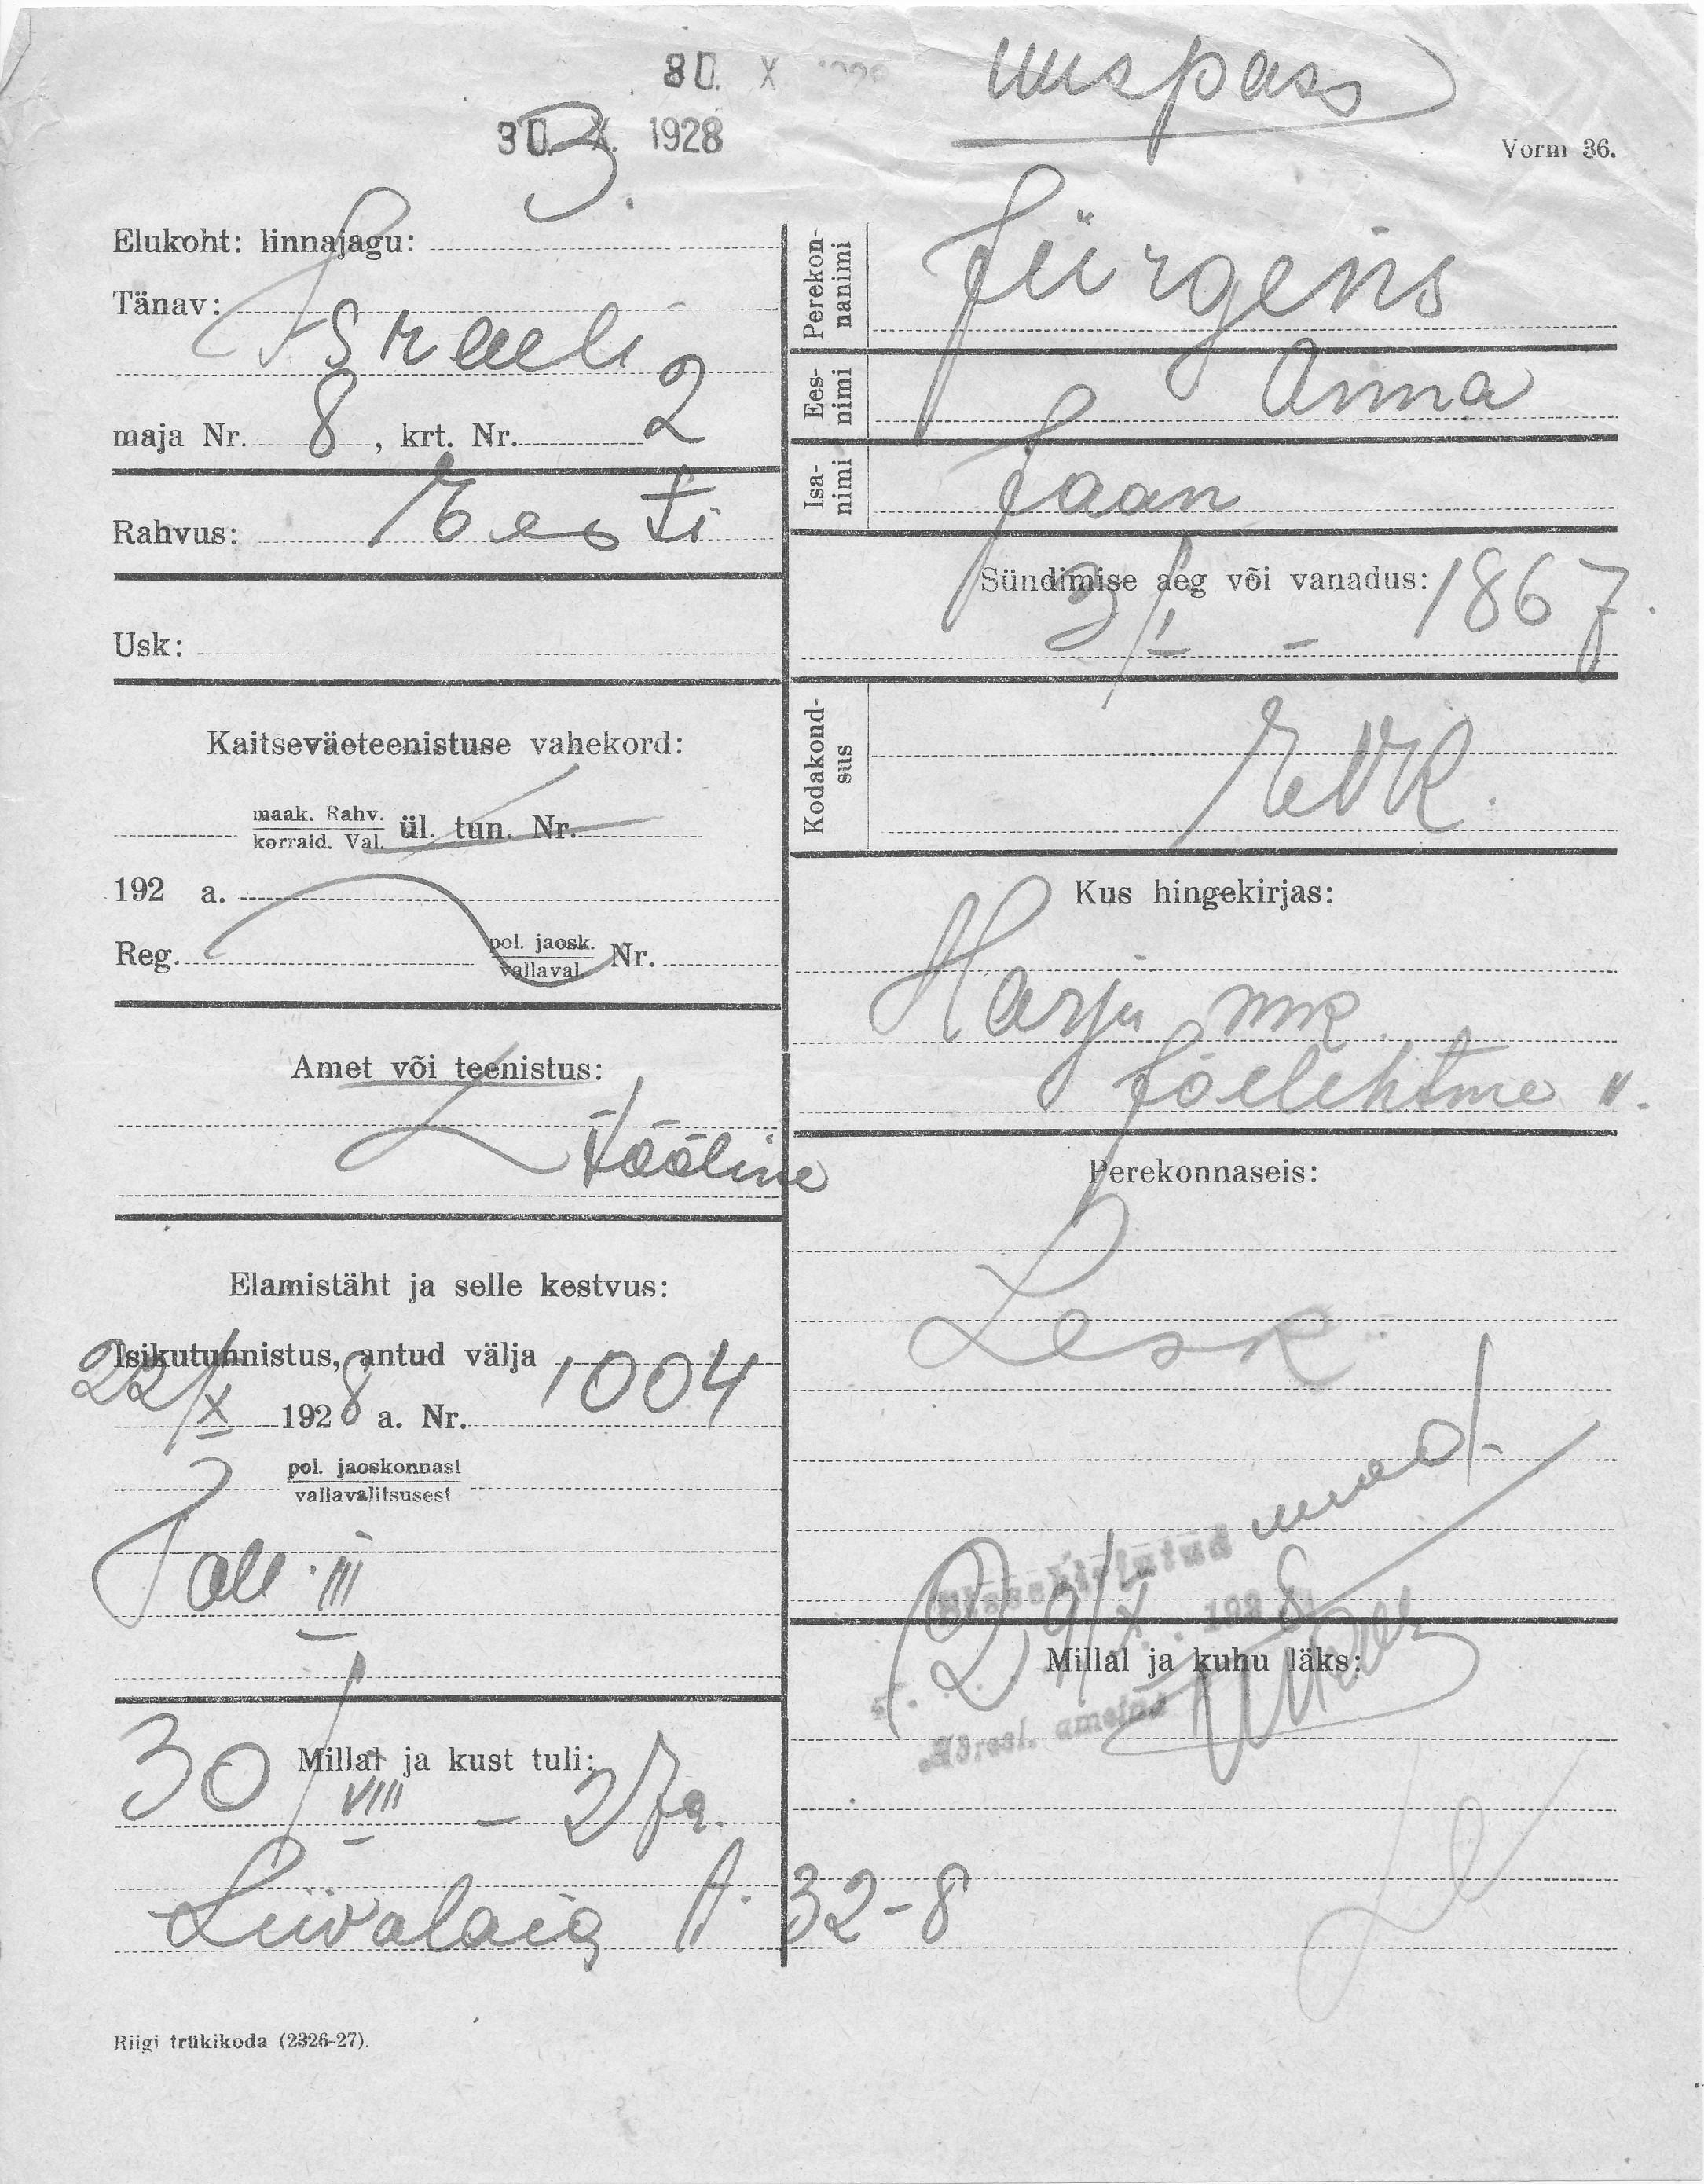 30. X
uuspass
30. X. 1928
3.
Vorm 36.
Elukoht: linnajagu:
Tänav:
Israeli
maja Nr. 8, krt. Nr. 2
Rahvus: Eesti
Usk:
Kaitseväeteenistuse vahekord:
maak. Rahv.
korrald. Val. ül. tun. Nr.
192 a.
Reg. pol. jaosk. Nr.
vallaval.
Amet või teenistus:
tööline
Elamistäht ja selle kestvus:
Isikutunnistus, antud välja
22/X 1928 a. Nr. 1004
pol. jaoskonnast
vallavalitsusest
Tall. III
Millal ja kust tuli:
30/VIII - 27a.
Liivalaia t. 32-8
Riigi trükikoda (2326-27).
Perekon-
nanimi
Jürgens
Ees-
nimi
Anna
Isa-
nimi
Jaan
Sündimise aeg või vanadus: 1867.
Kodakond-
sus
EVK.
Kus hingekirjas:
Harju mk.
Jõelehtme v.
Perekonnaseis:
Lesk
Millal ja kuhu läks: